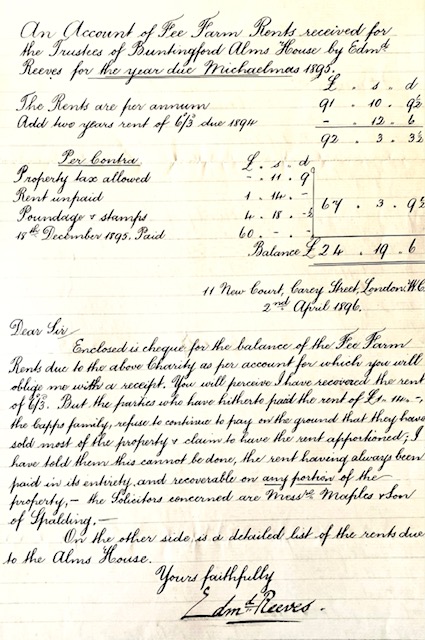 An Account of Fee Farm Rents received for
the Trustees of Buntingford Alms House by Edmd.
Reeves for the year due Michaelmas 1895.
£ . s . d
The Rents are per annum 91 . 10 . 9½
Add two years rent of 6/3 due 1894 - . 12 . 6
92 . 3 . 3½
Per Contra £ . s . d
Property tax allowed - . 11 . 9
Rent unpaid 1 . 14 . -
Poundage & stamps 4 . 18 . -½ 67 . 3 . 9½
18th December 1895, Paid 60 . - . -
Balance £ 24 . 19 . 6
11 New Court, Carey Street, London. W.C.
2nd April 1896.
Dear Sir
Enclosed is cheque for the balance of the Fee Farm
Rents due to the above Charity as per account for which you will
oblige me with a receipt. You will perceive I have recovered the rent
of 6/3. But the parties who have hitherto paid the rent of £1 - 14 . -,
the Capps family, refuse to continue to pay on the ground that they have
sold most of the property & claim to have the rent apportioned; I
have told them this cannot be done, the rent having always been
paid in its entirety, and recoverable on any portion of the
property, — the Solicitors concerned are Messrs. Maples & Son
of Spalding. —
On the other side, is a detailed list of the rents due
to the Alms House.
Yours faithfully
Edmd. Reeves.